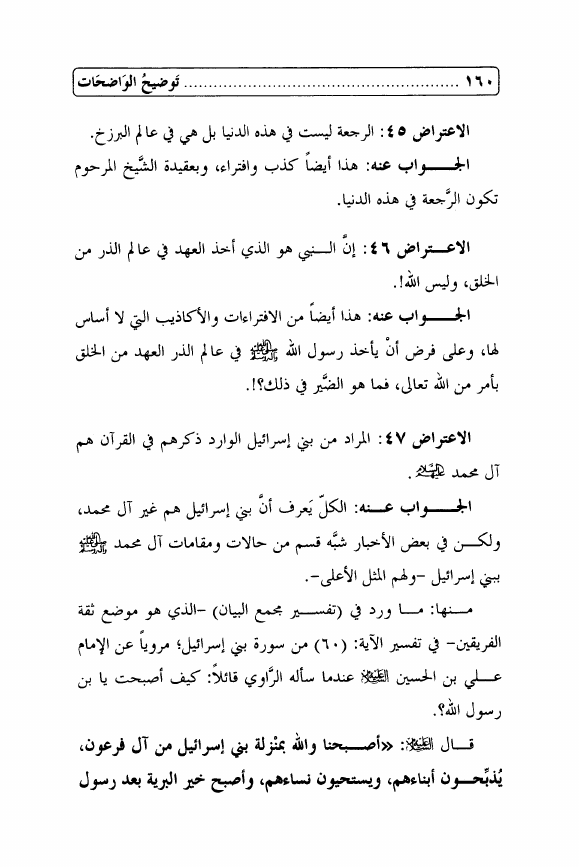 ١٦٠ ........................................................ تَوضيحُ الوَاضحَات
الاعتراض ٤٥: الرجعة ليست في هذه الدنيا بل هي في عالم البرزخ.
الجـــواب عنه: هذا أيضاً كذب وافتراء، وبعقيدة الشَّيخ المرحوم
تكون الرَّجعة في هذه الدنيا.
الاعـــتراض ٤٦: إنَّ الـــنبي هو الذي أخذ العهد في عالم الذر من
الخلق، وليس الله!.
الجـــواب عنه: هذا أيضاً من الافتراءات والأكاذيب التي لا أساس
لها، وعلى فرض أنْ يأخذ رسول الله ﷺ في عالم الذر العهد من الخلق
بأمر من الله تعالى، فما هو الضَّير في ذلك؟!.
الاعتراض ٤٧: المراد من بني إسرائيل الوارد ذكرهم في القرآن هم
آل محمد عليهم السلام.
الجـــواب عـــنه: الكلّ يَعرف أنَّ بني إسرائيل هم غير آل محمد،
ولكـــن في بعض الأخبار شبَّه قسم من حالات ومقامات آل محمد ﷺ
ببني إسرائيل –ولهم المثل الأعلى–.
مـــنها: مـــا ورد في (تفســـير مجمع البيان) –الذي هو موضع ثقة
الفريقين– في تفسير الآية: (٦٠) من سورة بني إسرائيل؛ مروياً عن الإمام
عـــلي بن الحسين عليه السلام عندما سأله الرَّاوي قائلاً: كيف أصبحت يا بن
رسول الله؟.
قـــال عليه السلام: «أصـــبحنا والله بمنْزلة بني إسرائيل من آل فرعون،
يُذبِّحـــون أبناءهم، ويستحيون نساءهم، وأصبح خير البرية بعد رسول